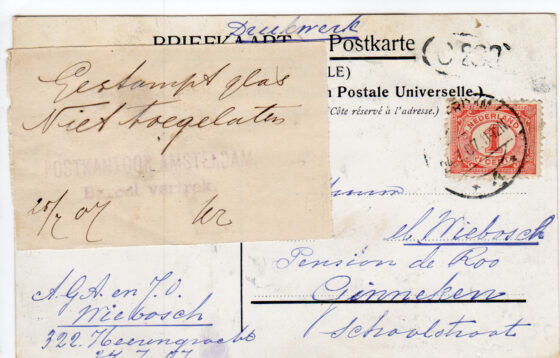 Drukwerk
BRIEFKAART Postkarte
LE)
n Postale Universelle.)
(Côté réservé à l'adresse.)
Gestampt glas
Niet toegelaten
POSTKANTOOR AMSTERDAM
Expeditie vertrek.
20/7 07
NEDERLAND
1
CENT
M. Wiebosch
Pension de Roo
Ginneken
Schoolstraat
A.G.A. en J.O.
Wiebosch
322. Heerengracht
24.7.07